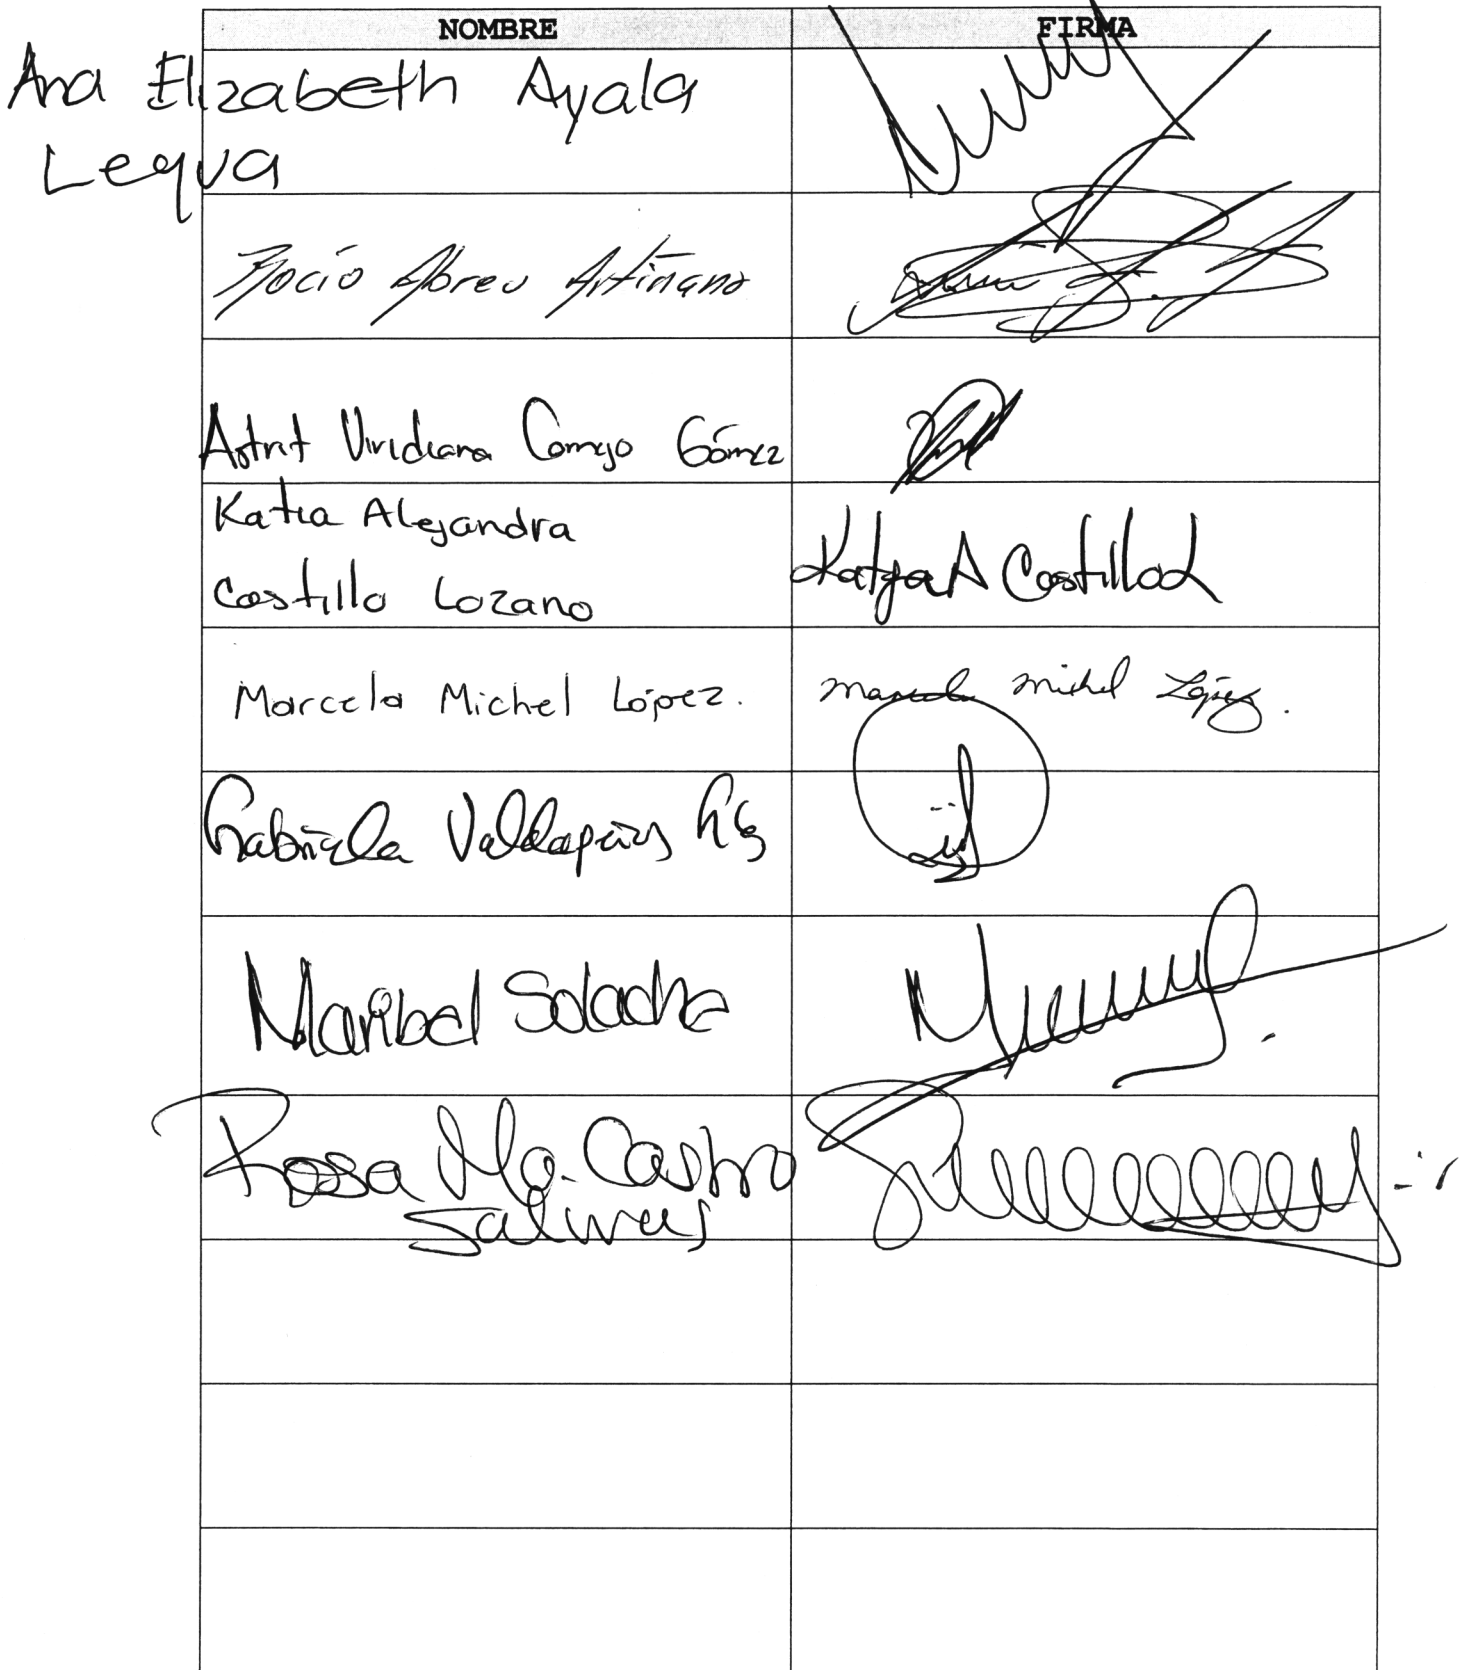 NOMBRE FIRMA
Ana Elizabeth Ayala
Leyva
Rocío Abreu Artiñano
Astrit Viridiana Cornejo Gómez
Katia Alejandra
Castillo Lozano
Katya A Castillo L
Marcela Michel López. Marcela Michel López.
Gabriela Valdepeñas
Maribel Solache
Rosa Ma. Castro
Salinas